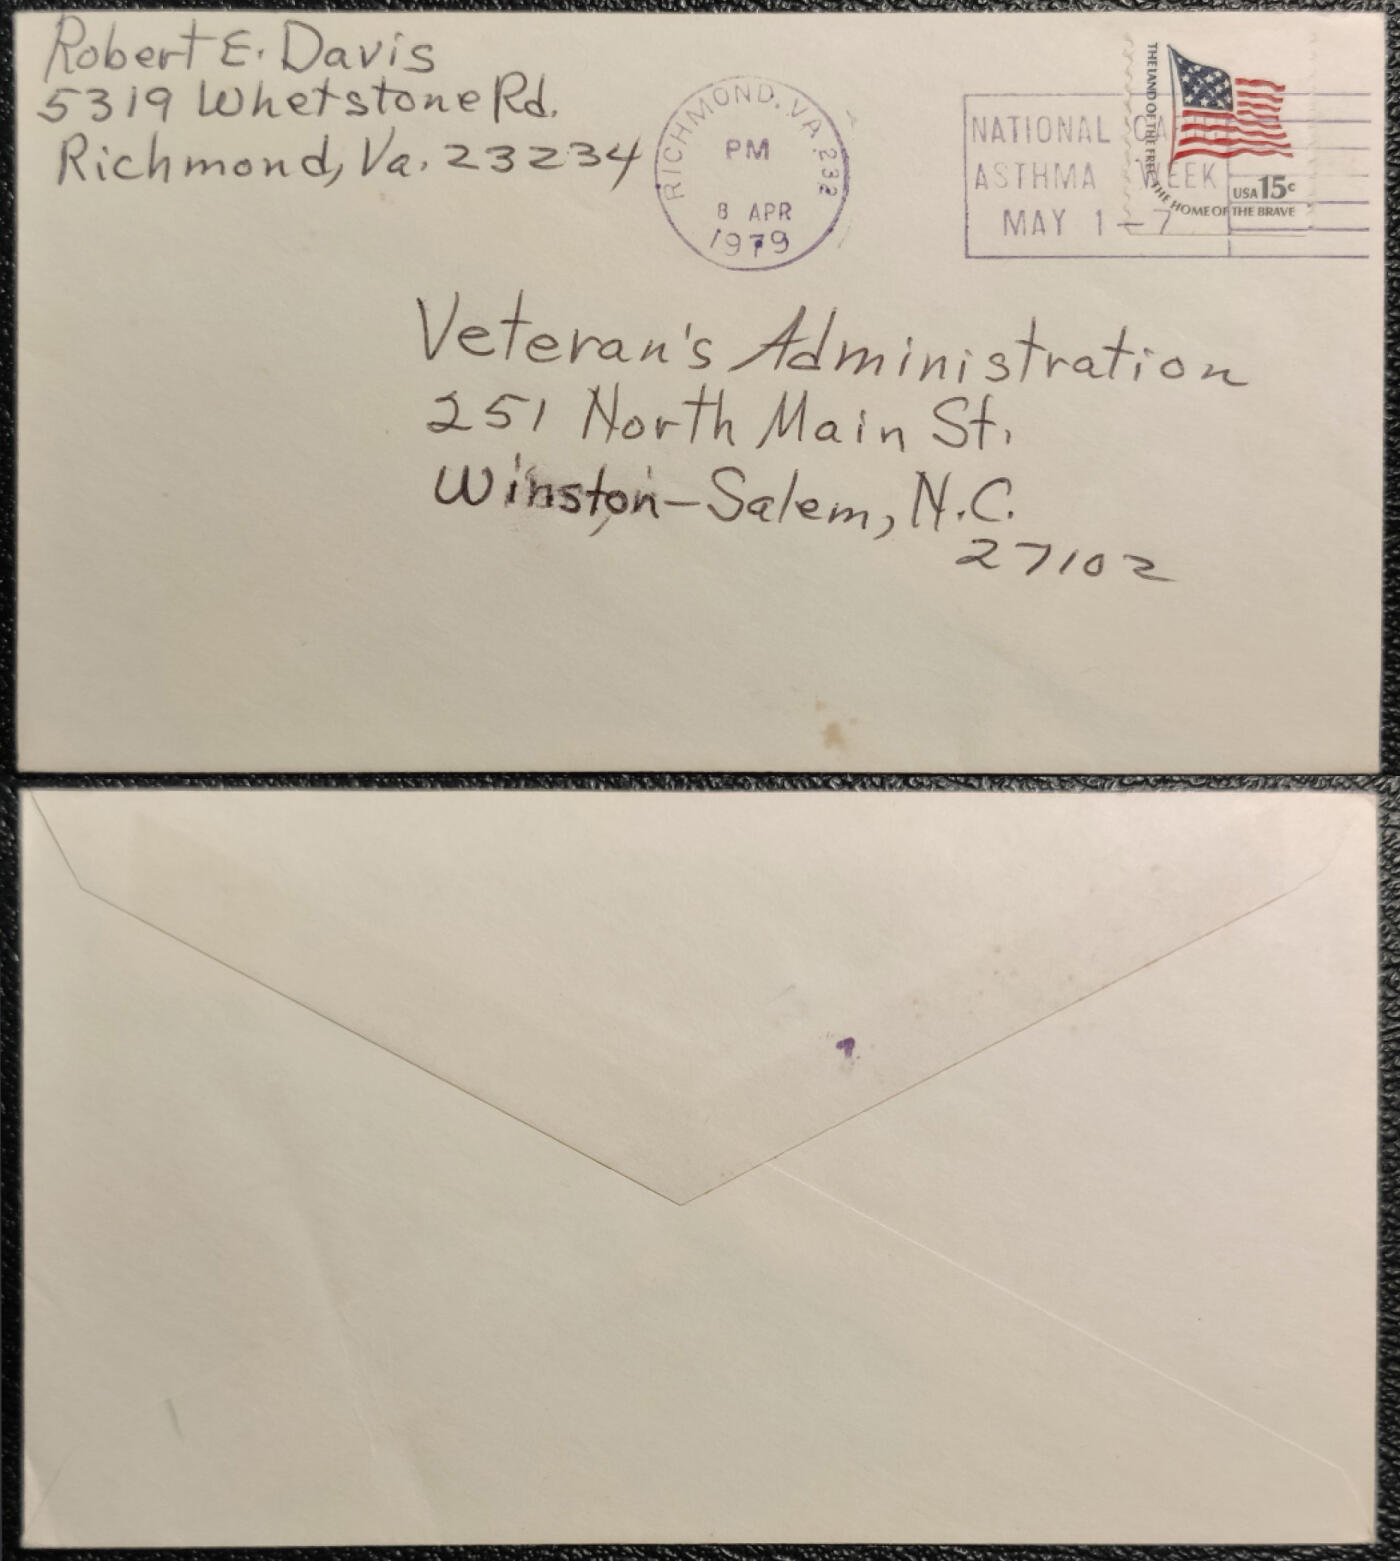 Robert E. Davis
5319 Whetstone Rd.
Richmond, Va. 23234
RICHMOND, VA. 232
PM
8 APR
1979
NATIONAL
ASTHMA WEEK
MAY 1-7
THE LAND OF THE FREE, THE HOME OF THE BRAVE
USA 15c
Veteran's Administration
251 North Main St.
Winston-Salem, N.C.
27102